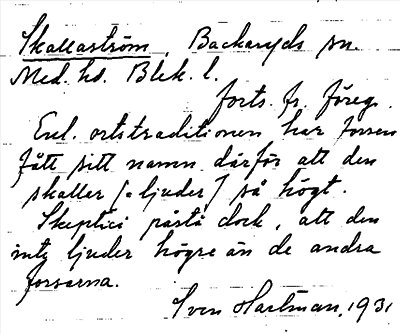 Skallaström, Backaryds sn.
Med. hd. Blek. l.
forts. fr. föreg.
Enl. ortstraditionen har forsen
fått sitt namn därför att den
skaller [= ljuder] så högt.
Skeptici påstå dock, att den
inte ljuder högre än de andra
forsarna.
Sven Hartman, 1931